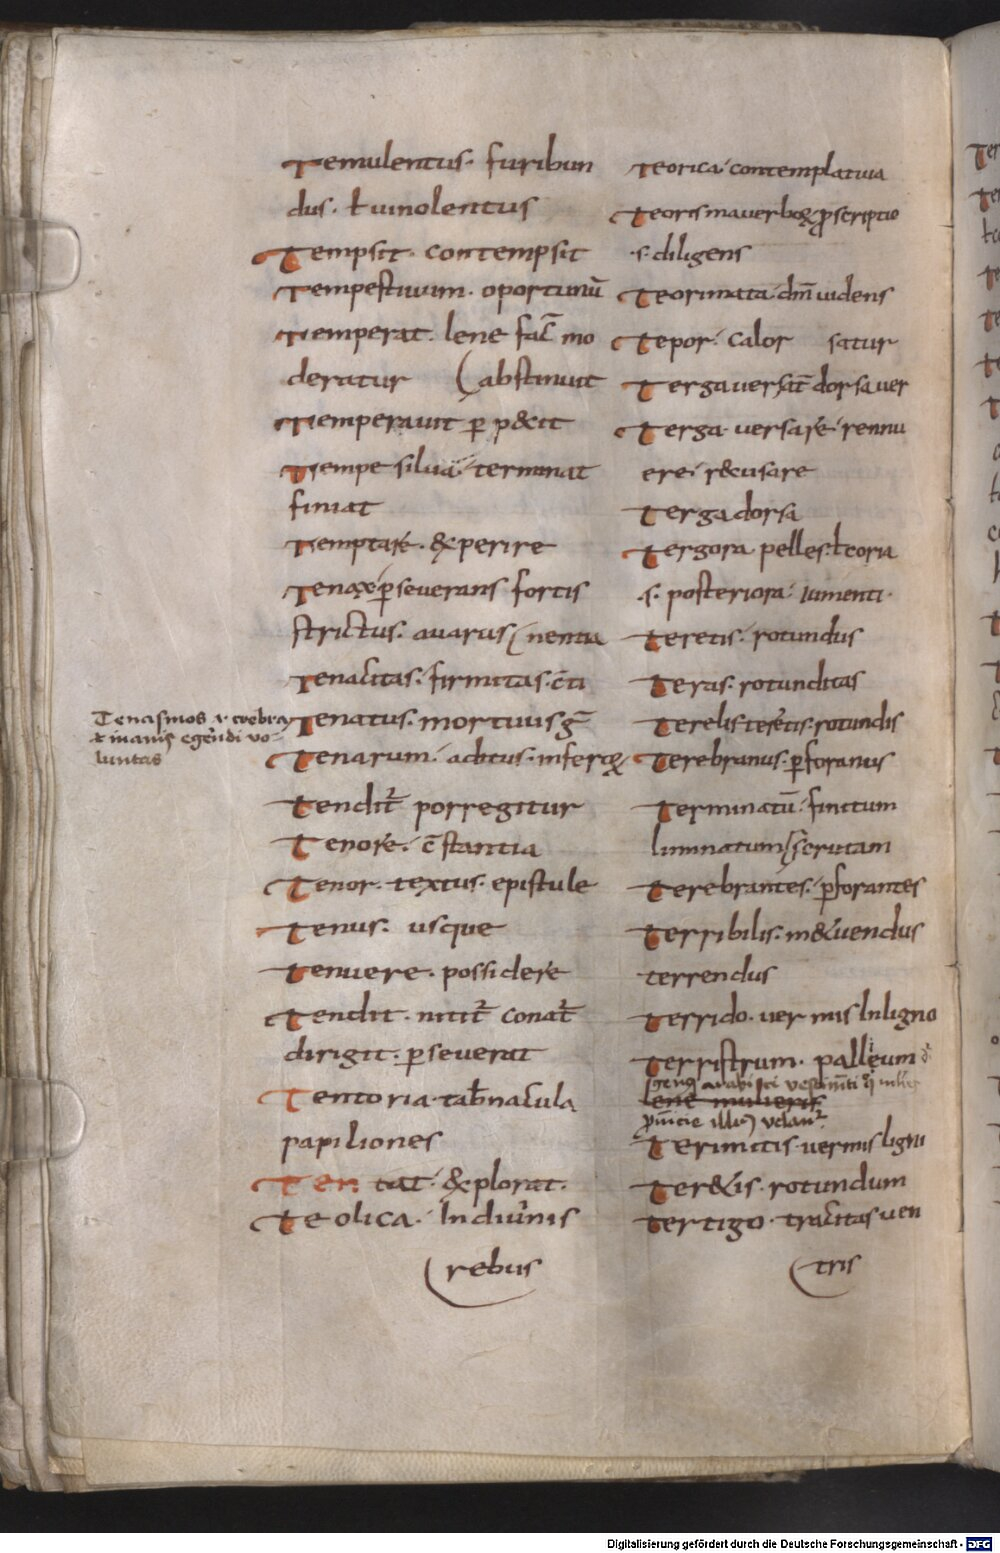 Temulentus. furibun
dus. ł uinolentus
Tempsit. contempsit
Tempestiuum. oportunū
Temperat. lene facī mo
deratur (abstinuit
Temperauit p̄ p&it
Tempe silua. terminat
finiat
Temptare. &xperire
Tenax. p̄seuerans fortis
strictus. auarus (nentia
Tenacitas. firmitas. c̄ti
Tenasmos . crebra
& inanis egendi uo
luntas
Tenatus. mortuus ḡ
Tenarum. aditus. inferoꝝ
Tendit̄ porregitur
Tenore. c̄stantia
Tenor. textus. epistule
Tenus. usque
Tenuere. possidere
Tendit. nitit̄ conat̄
dirigit. p̄seuerat
Tentoria. tab̄nacula
papiliones
Ten tat. &xplorat.
Teolica. In diuinis
(rebus
Teorica. contemplatiua
Teorisma uerboꝝ p̄scriptio
.s. diligens
Teorimata. dm̄ uidens
Tepor. calor satur
Terga uersat̄ dorsa uer
Terga. uersare. rennu
ere. r&cusare
Terga dorsa
Tergora pelles. ł coria
.s. posteriora. iumenti.
Teretis. rotundus
Teras. rotunditas
Terelis teretis. rotundis
Terebranus. p̄foranus
Terminatū. finitum
liminatum (scrutam
Terebrantes. p̄forantes
Terribilis. m&uendus
terrendus
Terrido. uermis In ligno
Terristrum. palleum
genus arabisti uestim̄ti qͥ mulier
lene mulieris
p̄uincie illiuꝰ uelant̄
Terimitis. uermis ligni
Ter&is. rotundum
Tertigo. tracitas uen
(tris
Digitalisierung gefördert durch die Deutsche Forschungsgemeinschaft - DFG